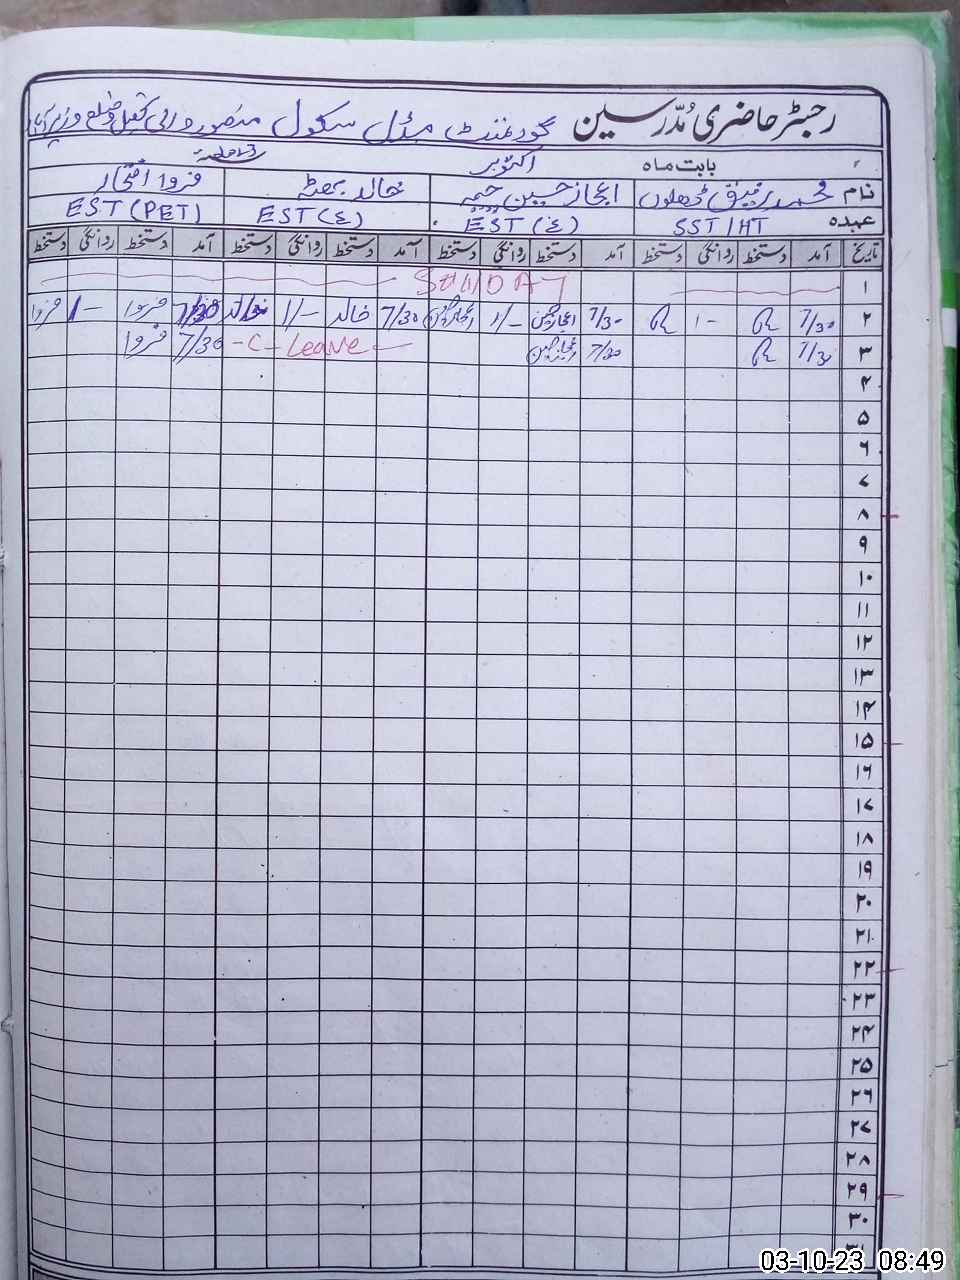 رجسٹر حاضری مُدّرسین گورنمنٹ مڈل سکول منصور والی تحصیل وضلع وزیرآباد
بابت ماہ اکتوبر
نام محمد رفیق ڈھلوں اعجاز حسین چیمہ خالد بھٹہ فروا افتخار
عہدہ SST/HT EST(ع) EST(ع) EST(PET)
تاریخ آمد دستخط روانگی دستخط آمد دستخط روانگی دستخط آمد دستخط روانگی دستخط آمد دستخط روانگی دستخط
۱ SUNDAY
۲ 7/30 1- 7/30 اعجاز حسین 1/- اعجاز حسین 7/30 خالد 1/- خالد 7/30 فروا 1- فروا
۳ 7/30 7/30 اعجاز حسین -C- Leave- 7/30 فروا
۴
۵
۶
۷
۸
۹
۱۰
۱۱
۱۲
۱۳
۱۴
۱۵
۱۶
۱۷
۱۸
۱۹
۲۰
۲۱
۲۲
۲۳
۲۴
۲۵
۲۶
۲۷
۲۸
۲۹
۳۰
۳۱
03-10-23 08:49